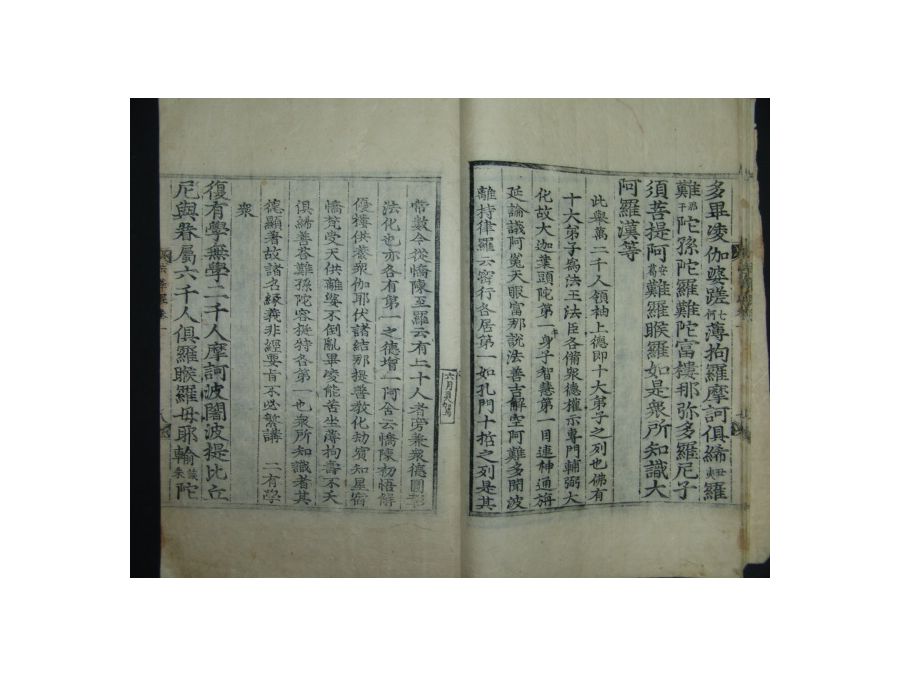 多畢凌伽婆蹉七何薄拘羅摩訶俱絺丑夷羅
難那干陀孫陀羅難陀富樓那弥多羅尼子
須菩提阿難安葛羅睺羅如是衆所知識大
阿羅漢等
此擧萬二千人領袖上德即十大弟子之列也佛有
十大弟子爲法王法臣各備衆德權示專門輔弼大
化故大迦葉頭陀第一身子智慧第一目連神通旃
延論議阿㝹天眼富那說法善吉解空阿難多聞波
離持律羅云密行各居第一如孔門十哲之列是其
常數今從憍陳至羅云有二十人者旁兼衆德圓彰
法化也亦各有第一之德增一阿含云憍陳初悟解
優樓供養衆伽耶伏諸結那提善教化劫賓知星宿
憍梵受天供離婆不倒亂畢凌能苦坐薄拘壽不夭
俱絺善答難孫陀容挺特各第一也衆所知識者其
德顯著故諸名緣義非經要旨不必繁講 二有學
衆
復有學無學二千人摩訶波闍波提比丘
尼與眷屬六千人俱羅睺羅母耶輸陀